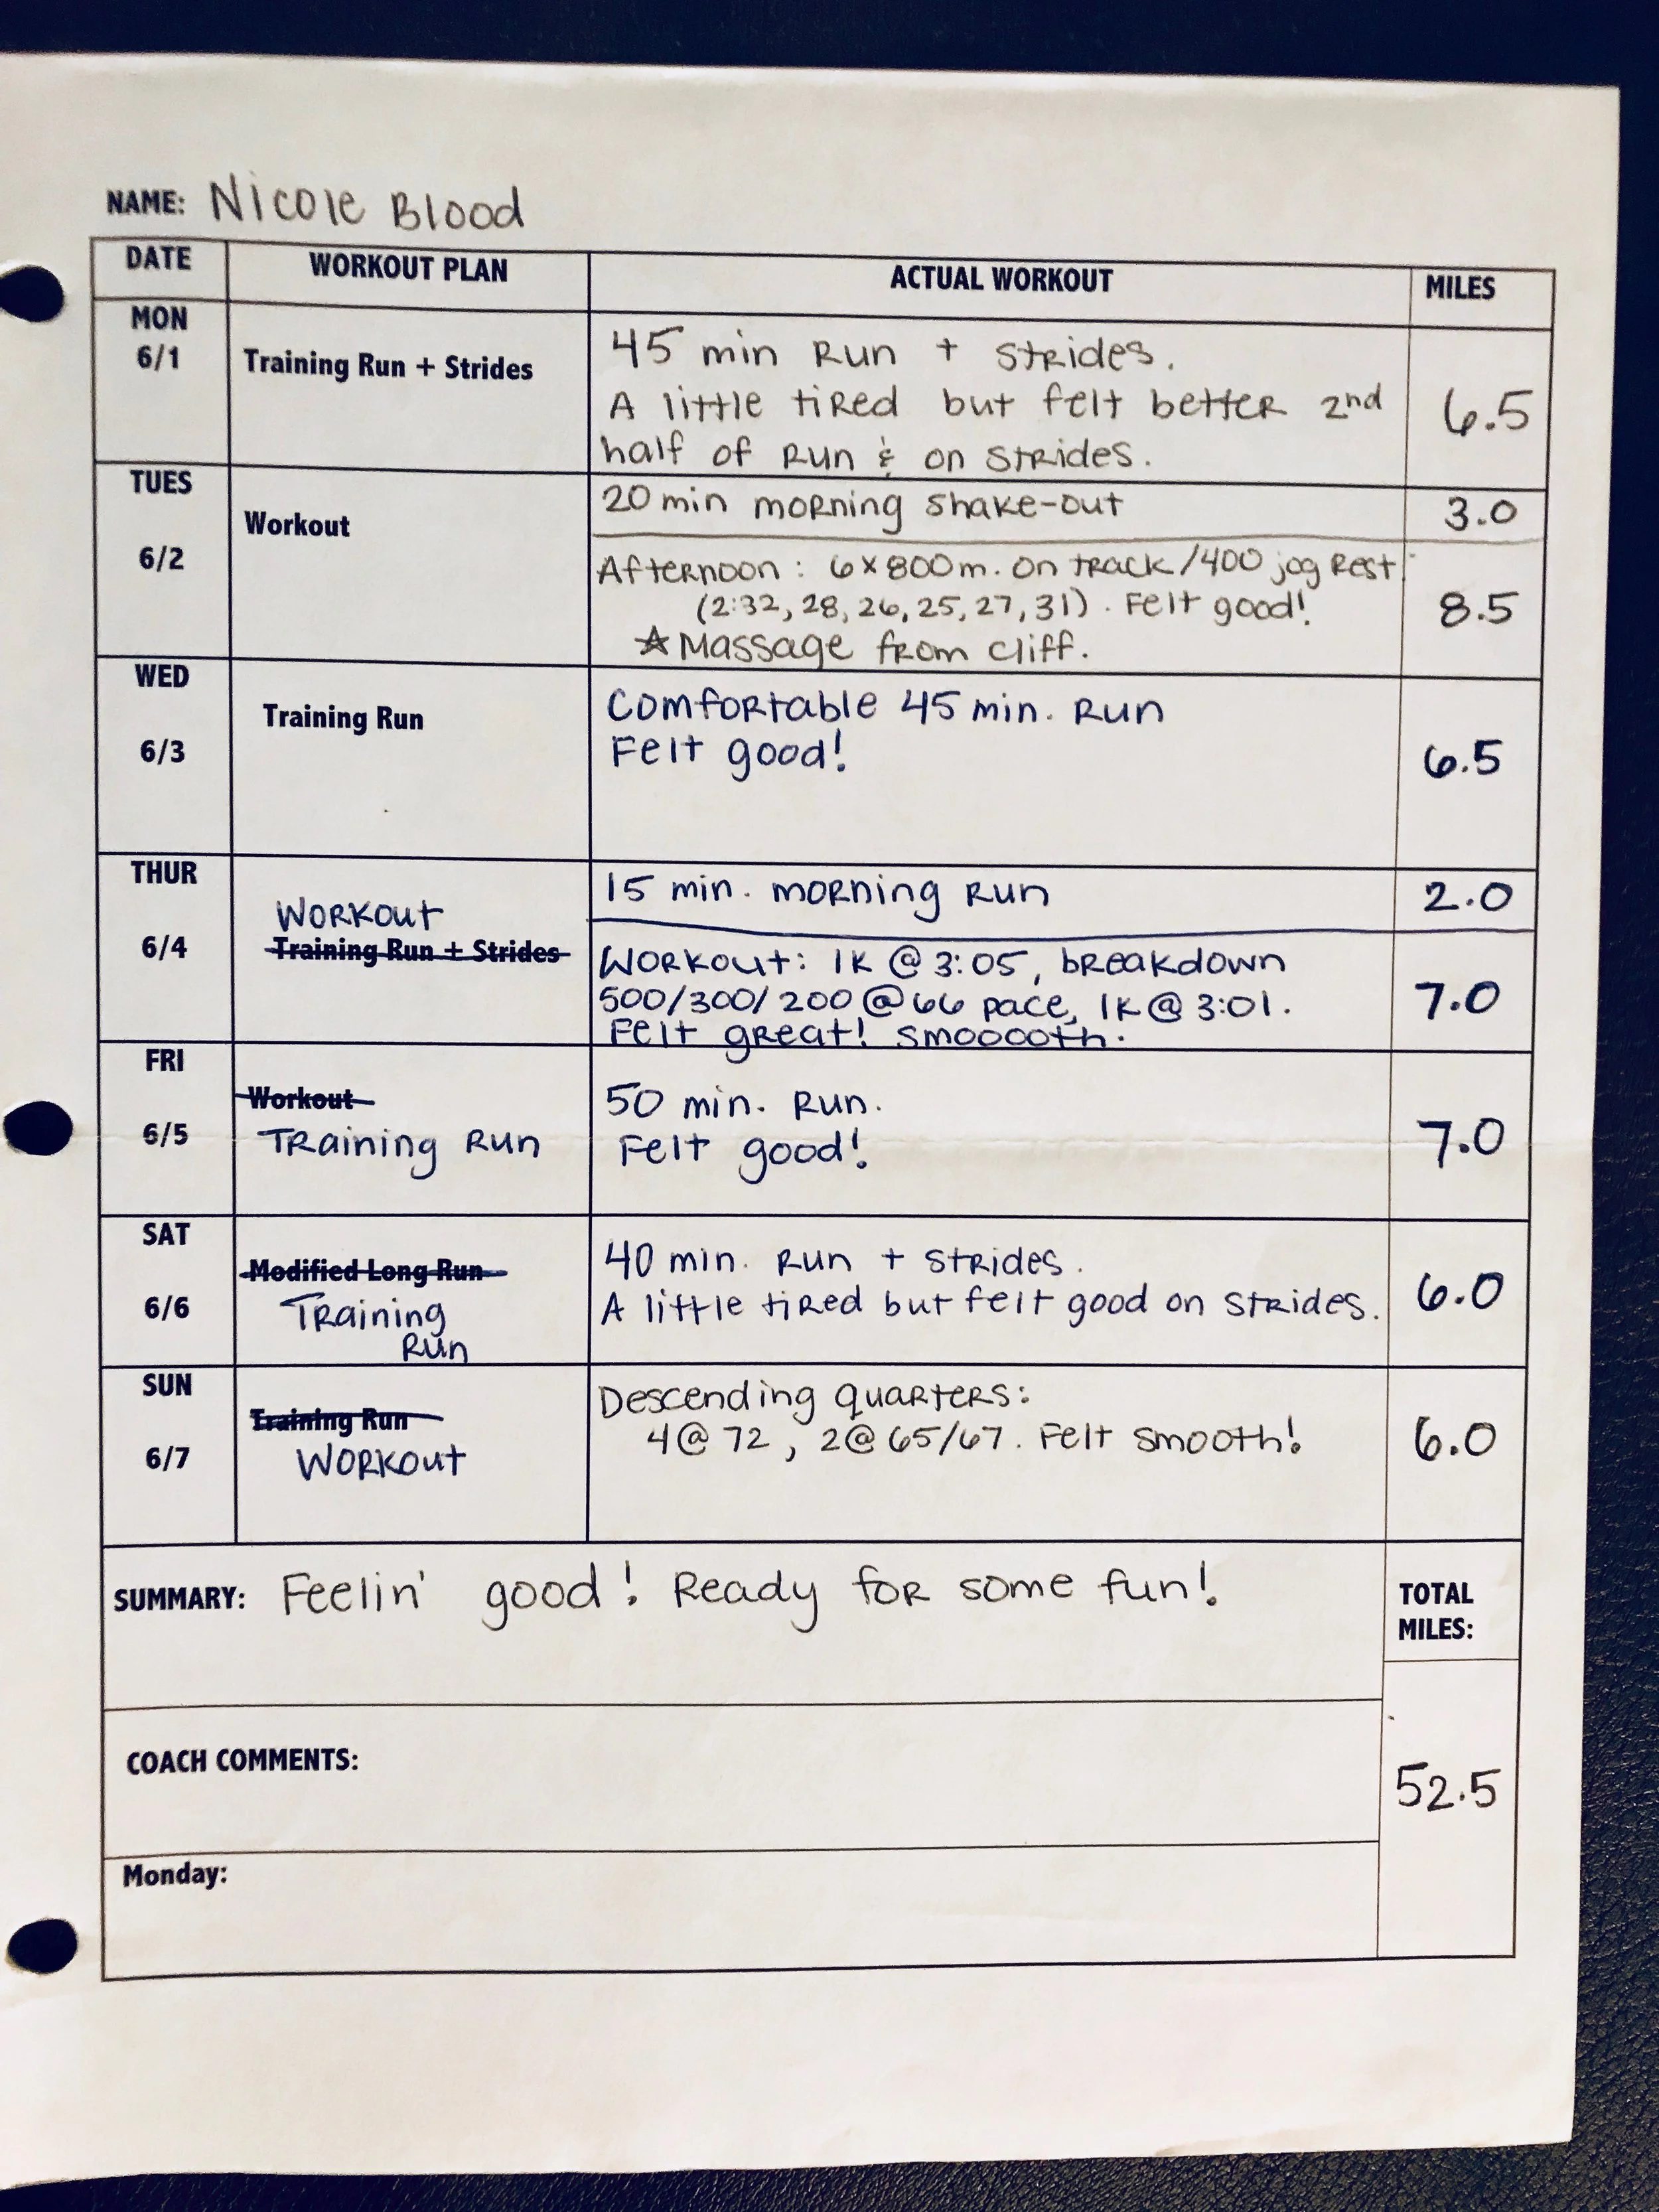 NAME: Nicole Blood
DATE WORKOUT PLAN ACTUAL WORKOUT MILES
MON
6/1
Training Run + Strides
45 min Run + Strides.
A little tired but felt better 2nd
half of Run & on Strides.
6.5
TUES
6/2
Workout
20 min morning shake-out
3.0
Afternoon: 6x800m. on track/400 jog Rest
(2:32, 28, 26, 25, 27, 31). Felt good!
☆ Massage from Cliff.
8.5
WED
6/3
Training Run
Comfortable 45 min. Run
Felt good!
6.5
THUR
6/4
Workout
Training Run + Strides
15 min. morning Run
2.0
Workout: 1K @ 3:05, breakdown
500/300/200 @ 66 pace, 1K @ 3:01.
Felt great! Smooooth.
7.0
FRI
6/5
Workout
Training Run
50 min. Run.
Felt good!
7.0
SAT
6/6
Modified Long Run
Training
Run
40 min. Run + Strides.
A little tired but felt good on Strides.
6.0
SUN
6/7
Training Run
Workout
Descending quarters:
4@72, 2@65/67. Felt smooth!
6.0
SUMMARY: Feelin' good! Ready for some fun!
TOTAL
MILES:
52.5
COACH COMMENTS:
Monday: